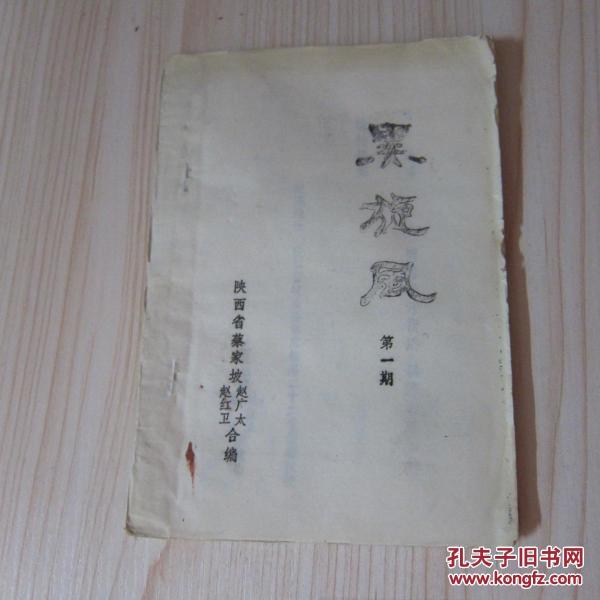 黑旋风
第一期
陕西省蔡家坡赵广太
赵红卫合编
孔夫子旧书网
www.kongfz.com